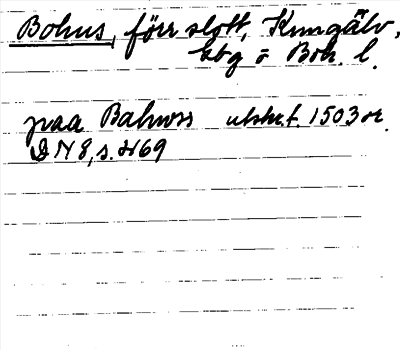 Bohus, förr slott, Kungälv,
kbg o Boh. l.
paa Bahwss utskr. f. 1503 or.
DN 8, s. 469